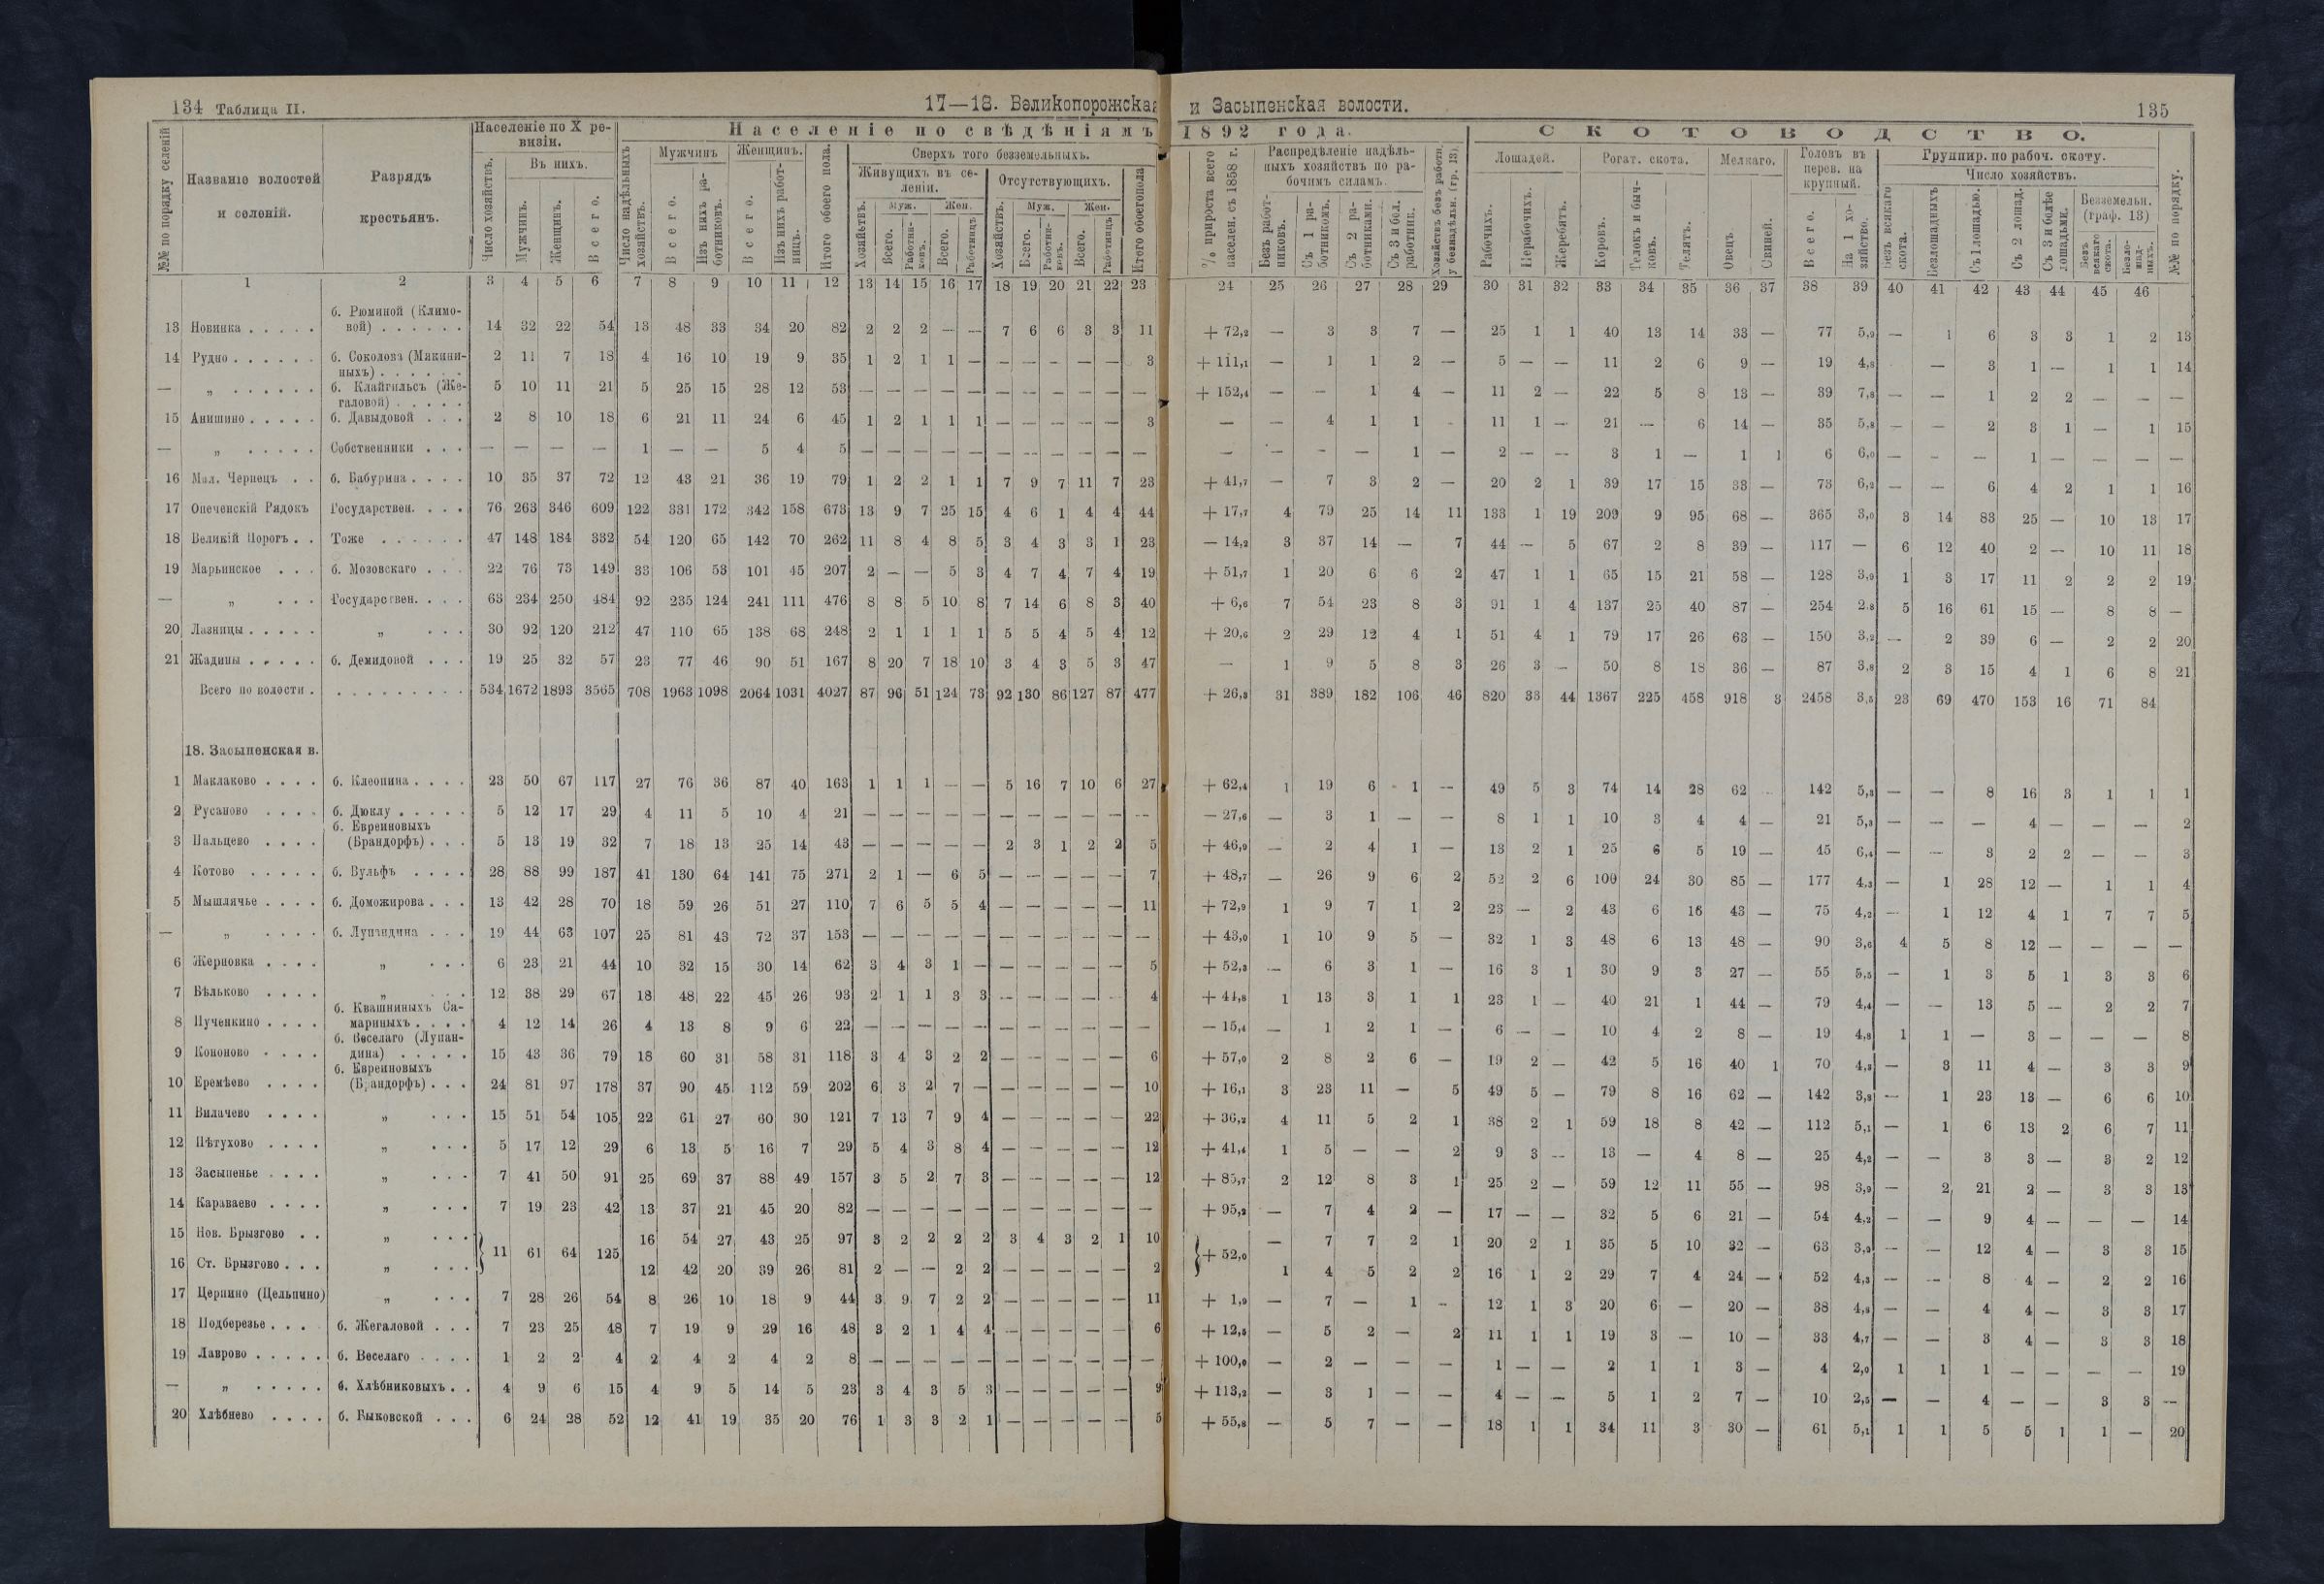 134 Таблица II.
17—18. Великопорожская и Засыпенская волости.
135
№№ по порядку селеній
Названіе волостей и селеній.
Разрядъ крестьянъ.
Населеніе по X ревизіи.
Число хозяйствъ.
Въ нихъ.
Мужчинъ.
Женщинъ.
Всего.
Населеніе по свѣдѣніямъ 1892 года.
Число надѣльныхъ хозяйствъ.
Мужчинъ
Всего.
Изъ нихъ работниковъ.
Женщинъ.
Всего.
Изъ нихъ работницъ.
Итого обоего пола.
Сверхъ того безземельныхъ.
Живущихъ въ селеніи.
Отсутствующихъ.
Хозяйствъ.
Муж.
Жен.
Итого обоего пола
% прироста всего населен. съ 1858 г.
Распредѣленіе надѣльныхъ хозяйствъ по рабочимъ силамъ.
Безъ работниковъ.
Съ 1 работникомъ.
Съ 2 работниками.
Съ 3 и бол. работник.
СКОТОВОДСТВО.
Лошадей.
Рабочихъ.
Нерабочихъ.
Жеребятъ.
Рогат. скота.
Коровъ.
Телокъ и бычковъ.
Телятъ.
Мелкаго.
Овецъ.
Свиней.
Головъ въ перев. на крупный.
Всего.
На 1 хозяйство.
Группир. по рабоч. скоту.
Число хозяйствъ.
Безъ всякаго скота.
Безлошадныхъ
Съ 1 лошадью.
Съ 2 лошад.
Съ 3 и болѣе лошадьми.
Безземельн. (граф. 13)
№№ по порядку.
1 2 3 4 5 6 7 8 9 10 11 12 13 14 15 16 17 18 19 20 21 22 23 24 25 26 27 28 29 30 31 32 33 34 35 36 37 38 39 40 41 42 43 44 45 46
13 Новинка . . . . . б. Рюминой (Климовой) . . . . . . 14 32 22 54 13 48 33 34 20 82 2 2 2 — — 7 6 6 3 3 11 + 72,2 — 3 3 7 — 25 1 1 40 13 14 33 — 77 5,9 — 1 6 3 3 1 2 13
14 Рудно . . . . . . б. Соколова (Мякининыхъ) . . . . . . 2 11 7 18 4 16 10 19 9 35 1 2 1 1 — — — — — — 3 + 111,1 — 1 1 2 — 5 — — 11 2 6 9 — 19 4,8 — 3 1 — 1 1 14
— „ . . . . . . б. Клайгильсъ (Жегаловой) . . . . . 5 10 11 21 5 25 15 28 12 53 — — — — — — — — — — — + 152,4 — — 1 4 — 11 2 — 22 5 8 13 — 39 7,8 — — 1 2 2 — — —
15 Анишино . . . . . б. Давыдовой . . . 2 8 10 18 6 21 11 24 6 45 1 2 1 1 1 — — — — — 3 — — 4 1 1 11 1 — 21 — 6 14 — 35 5,8 — — 2 3 1 — 1 15
— „ . . . . . Собственники . . . — — — — 1 — — 5 4 5 — — — — — — — — — — — — — — — 1 — 2 — — 3 1 — 1 1 6 6,0 — — — 1 — — — —
16 Мал. Чернецъ . . б. Бабурина . . . . 10 35 37 72 12 43 21 36 19 79 1 2 2 1 1 7 9 7 11 7 23 + 41,7 — 7 3 2 — 20 2 1 39 17 15 33 — 73 6,2 — — 6 4 2 1 1 16
17 Опеченскій Рядокъ Государствен. . . . 76 263 346 609 122 331 172 342 158 673 13 9 7 25 15 4 6 1 4 4 44 + 17,7 4 79 25 14 11 133 1 19 209 9 95 68 — 365 3,0 3 14 83 25 — 10 13 17
18 Великій Порогъ . . Тоже . . . . . . 47 148 184 332 54 120 65 142 70 262 11 8 4 8 5 3 4 3 3 1 23 — 14,2 3 37 14 — 7 44 — 5 67 2 8 39 — 117 — 6 12 40 2 — 10 11 18
19 Марьинское . . . б. Мозовскаго . . . 22 76 73 149 33 106 53 101 45 207 2 — — 5 3 4 7 4 7 4 19 + 51,7 1 20 6 6 2 47 1 1 65 15 21 58 — 128 3,9 1 3 17 11 2 2 2 19
— „ . . . Государствен. . . . 63 234 250 484 92 235 124 241 111 476 8 8 5 10 8 7 14 6 8 3 40 + 6,6 7 54 23 8 3 91 1 4 137 25 40 87 — 254 2,8 5 16 61 15 — 8 8 —
20 Лазницы . . . . . „ . . . 30 92 120 212 47 110 65 138 68 248 2 1 1 1 1 5 5 4 5 4 12 + 20,6 2 29 12 4 1 51 4 1 79 17 26 63 — 150 3,2 — 2 39 6 — 2 2 20
21 Жадины . . . . . б. Демидовой . . . 19 25 32 57 23 77 46 90 51 167 8 20 7 18 10 3 4 3 5 3 47 — 1 9 5 8 3 26 3 — 50 8 18 36 — 87 3,8 2 3 15 4 1 6 8 21
Всего по волости . . . . . . . . . . 534 1672 1893 3565 708 1963 1098 2064 1031 4027 87 96 51 124 73 92 130 86 127 87 477 + 26,8 31 389 182 106 46 820 33 44 1367 225 458 918 3 2458 3,5 23 69 470 153 16 71 84
18. Засыпенская в.
1 Маклаково . . . . б. Клеопина . . . . 23 50 67 117 27 76 36 87 40 163 1 1 1 — — 5 16 7 10 6 27 + 62,4 1 19 6 1 — 49 5 3 74 14 28 62 142 5,3 — — 8 16 3 1 1 1
2 Русаново . . . . б. Дюклу . . . . . 5 12 17 29 4 11 5 10 4 21 — — — — — — — — — — — — 27,6 — 3 1 — — 8 1 1 10 3 4 4 — 21 5,3 — — — 4 — — — 2
3 Пальцево . . . . б. Евреиновыхъ (Брандорфъ) . . . 5 13 19 32 7 18 13 25 14 43 — — — — — 2 3 1 2 2 5 + 46,9 — 2 4 1 — 13 2 1 25 6 5 19 — 45 6,4 — — 3 2 2 — — 3
4 Котово . . . . . б. Вульфъ . . . . 28 88 99 187 41 130 64 141 75 271 2 1 — 6 5 — — — — — 7 + 48,7 — 26 9 6 2 52 2 6 100 24 30 85 — 177 4,3 — 1 28 12 — 1 1 4
5 Мышлячье . . . . б. Доможирова . . . 13 42 28 70 18 59 26 51 27 110 7 6 5 5 4 — — — — — 11 + 72,9 1 9 7 1 2 23 — 2 43 6 16 43 — 75 4,2 — 1 12 4 1 7 7 5
— „ . . . . б. Лупандина . . . 19 44 63 107 25 81 43 72 37 153 — — — — — — — — — — — + 43,0 1 10 9 5 — 32 1 3 48 6 13 48 — 90 3,6 4 5 8 12 — — — —
6 Жерновка . . . . „ . . . 6 23 21 44 10 32 15 30 14 62 3 4 3 1 — — — — — — 5 + 52,3 — 6 3 1 — 16 3 1 30 9 3 27 — 55 5,5 — 1 3 5 1 3 3 6
7 Бѣльково . . . . „ . . . 12 38 29 67 18 48 22 45 26 93 2 1 1 3 3 — — — — — 4 + 44,8 1 13 3 1 1 23 1 — 40 21 1 44 — 79 4,4 — — 13 5 — 2 2 7
8 Пученкино . . . . б. Квашниныхъ Самариныхъ . . . . 4 12 14 26 4 13 8 9 6 22 — — — — — — — — — — — — 15,4 — 1 2 1 — 6 — — 10 4 2 8 — 19 4,8 1 1 — 3 — — — 8
9 Кононово . . . . б. Веселаго (Лупандина) . . . . . 15 43 36 79 18 60 31 58 31 118 3 4 3 2 2 — — — — — 6 + 57,0 2 8 2 6 — 19 2 — 42 5 16 40 1 70 4,3 — 3 11 4 — 3 3 9
10 Еремѣево . . . . б. Евреиновыхъ (Брандорфъ) . . . 24 81 97 178 37 90 45 112 59 202 6 3 2 7 — — — — — — 10 + 16,1 3 23 11 — 5 49 5 — 79 8 16 62 — 142 3,8 — 1 23 13 — 6 6 10
11 Вилачево . . . . „ . . . 15 51 54 105 22 61 27 60 30 121 7 13 7 9 4 — — — — — 22 + 36,2 4 11 5 2 1 38 2 1 59 18 8 42 — 112 5,1 — 1 6 13 2 6 7 11
12 Пѣтухово . . . . „ . . . 5 17 12 29 6 13 5 16 7 29 5 4 3 8 4 — — — — — 12 + 41,4 1 5 — — 2 9 3 — 13 — 4 8 — 25 4,2 — — 3 3 — 3 2 12
13 Засыпенье . . . . „ . . . 7 41 50 91 25 69 37 88 49 157 3 5 2 7 3 — — — — — 12 + 85,7 2 12 8 3 1 25 2 — 59 12 11 55 — 98 3,9 — 2 21 2 — 3 3 13
14 Караваево . . . . „ . . . 7 19 23 42 13 37 21 45 20 82 — — — — — — — — — — — + 95,2 — 7 4 2 — 17 — — 32 5 6 21 — 54 4,2 — — 9 4 — — — 14
15 Нов. Брызгово . . „ . . . 11 61 64 125 16 54 27 43 25 97 3 2 2 2 2 3 4 3 2 1 10 + 52,0 — 7 7 2 1 20 2 1 35 5 10 32 — 63 3,9 — — 12 4 — 3 3 15
16 Ст. Брызгово . . . „ . . . 12 42 20 39 26 81 2 — — 2 2 — — — — — 2 1 4 5 2 2 16 1 2 29 7 4 24 — 52 4,3 — — 8 4 — 2 2 16
17 Церпино (Цельпино) „ . . . 7 28 26 54 8 26 10 18 9 44 3 9 7 2 2 — — — — — 11 + 1,9 — 7 — 1 — 12 1 3 20 6 — 20 — 38 4,8 — — 4 4 — 3 3 17
18 Подберезье . . . б. Жегаловой . . . 7 23 25 48 7 19 9 29 16 48 3 2 1 4 4 — — — — — 6 + 12,5 — 5 2 — 2 11 1 1 19 3 — 10 — 33 4,7 — — 3 4 — 3 3 18
19 Лаврово . . . . . б. Веселаго . . . . 1 2 2 4 2 4 2 4 2 8 — — — — — — — — — — — + 100,0 — 2 — — — 1 — — 2 1 1 3 — 4 2,0 1 1 1 — — — — 19
— „ . . . . . б. Хлѣбниковыхъ . . 4 9 6 15 4 9 5 14 5 23 3 4 3 5 3 — — — — — 9 + 113,2 — 3 1 — — 4 — — 5 1 2 7 — 10 2,5 — — 4 — — 3 3 —
20 Хлѣбнево . . . . б. Быковской . . . 6 24 28 52 12 41 19 35 20 76 1 3 3 2 1 — — — — — 5 + 55,8 — 5 7 — — 18 1 1 34 11 3 30 — 61 5,1 1 1 5 5 1 1 — 20